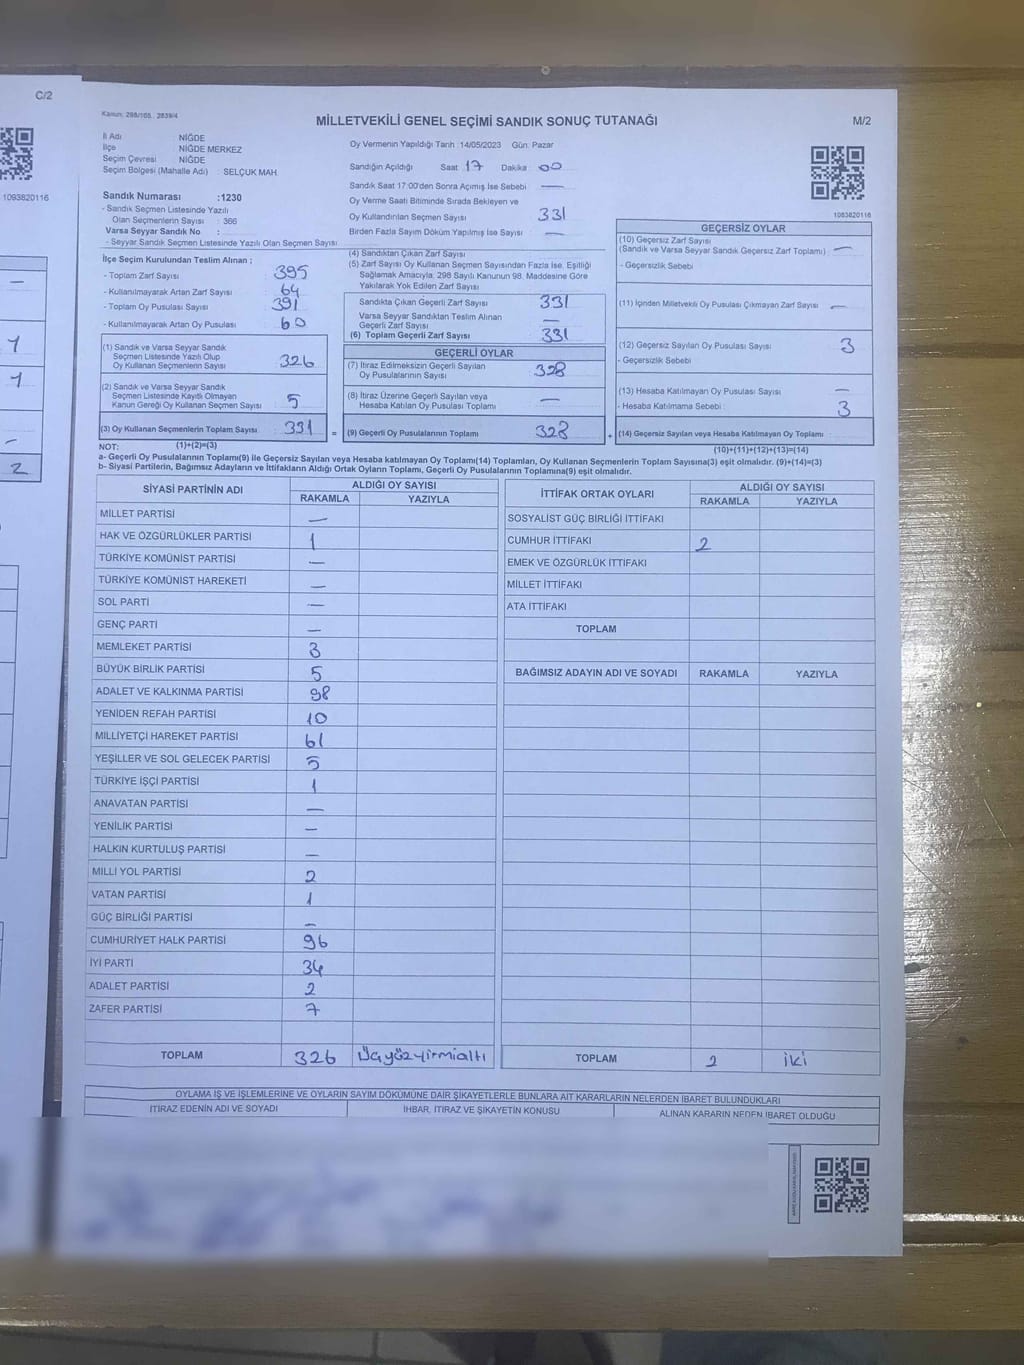 C/2
1093820116
1
1
2
Kanun: 298/105, 2839/4
MİLLETVEKİLİ GENEL SEÇİMİ SANDIK SONUÇ TUTANAĞI
M/2
İl Adı NİĞDE
İlçe NİĞDE MERKEZ
Seçim Çevresi NİĞDE
Seçim Bölgesi (Mahalle Adı) : SELÇUK MAH.
Sandık Numarası :1230
- Sandık Seçmen Listesinde Yazılı
Olan Seçmenlerin Sayısı : 366
Varsa Seyyar Sandık No :
- Seyyar Sandık Seçmen Listesinde Yazılı Olan Seçmen Sayısı
Oy Vermenin Yapıldığı Tarih :14/05/2023 Gün: Pazar
Sandığın Açıldığı Saat 17 Dakika 00
Sandık Saat 17:00'den Sonra Açılmış İse Sebebi —
Oy Verme Saati Bitiminde Sırada Bekleyen ve
Oy Kullandırılan Seçmen Sayısı 331
Birden Fazla Sayım Döküm Yapılmış İse Sayısı —
1083820116
İlçe Seçim Kurulundan Teslim Alınan :
- Toplam Zarf Sayısı 395
- Kullanılmayarak Artan Zarf Sayısı 64
- Toplam Oy Pusulası Sayısı 391
- Kullanılmayarak Artan Oy Pusulası 60
(1) Sandık ve Varsa Seyyar Sandık
Seçmen Listesinde Yazılı Olup
Oy Kullanan Seçmenlerin Sayısı 326
(2) Sandık ve Varsa Seyyar Sandık
Seçmen Listesinde Kayıtlı Olmayan
Kanun Gereği Oy Kullanan Seçmen Sayısı 5
(3) Oy Kullanan Seçmenlerin Toplam Sayısı 331 =
(4) Sandıktan Çıkan Zarf Sayısı
(5) Zarf Sayısı Oy Kullanan Seçmen Sayısından Fazla İse, Eşitliği
Sağlamak Amacıyla, 298 Sayılı Kanunun 98. Maddesine Göre
Yakılarak Yok Edilen Zarf Sayısı
Sandıkta Çıkan Geçerli Zarf Sayısı 331
Varsa Seyyar Sandıktan Teslim Alınan
Geçerli Zarf Sayısı —
(6) Toplam Geçerli Zarf Sayısı 331
GEÇERLİ OYLAR
(7) İtiraz Edilmeksizin Geçerli Sayılan
Oy Pusulalarının Sayısı 328
(8) İtiraz Üzerine Geçerli Sayılan veya
Hesaba Katılan Oy Pusulası Toplamı —
(9) Geçerli Oy Pusulalarının Toplamı 328 +
GEÇERSİZ OYLAR
(10) Geçersiz Zarf Sayısı
(Sandık ve Varsa Seyyar Sandık Geçersiz Zarf Toplamı) —
- Geçersizlik Sebebi
(11) İçinden Milletvekili Oy Pusulası Çıkmayan Zarf Sayısı —
(12) Geçersiz Sayılan Oy Pusulası Sayısı 3
- Geçersizlik Sebebi
(13) Hesaba Katılmayan Oy Pusulası Sayısı —
- Hesaba Katılmama Sebebi : 3
(14) Geçersiz Sayılan veya Hesaba Katılmayan Oy Toplamı
NOT: (1)+(2)=(3) (10)+(11)+(12)+(13)=(14)
a- Geçerli Oy Pusulalarının Toplamı(9) ile Geçersiz Sayılan veya Hesaba katılmayan Oy Toplamı(14) Toplamları, Oy Kullanan Seçmenlerin Toplam Sayısına(3) eşit olmalıdır. (9)+(14)=(3)
b- Siyasi Partilerin, Bağımsız Adayların ve İttifakların Aldığı Ortak Oyların Toplamı, Geçerli Oy Pusulalarının Toplamına(9) eşit olmalıdır.
SİYASİ PARTİNİN ADI ALDIĞI OY SAYISI
RAKAMLA YAZIYLA
MİLLET PARTİSİ —
HAK VE ÖZGÜRLÜKLER PARTİSİ 1
TÜRKİYE KOMÜNİST PARTİSİ —
TÜRKİYE KOMÜNİST HAREKETİ —
SOL PARTİ —
GENÇ PARTİ —
MEMLEKET PARTİSİ 3
BÜYÜK BİRLİK PARTİSİ 5
ADALET VE KALKINMA PARTİSİ 98
YENİDEN REFAH PARTİSİ 10
MİLLİYETÇİ HAREKET PARTİSİ 61
YEŞİLLER VE SOL GELECEK PARTİSİ 5
TÜRKİYE İŞÇİ PARTİSİ 1
ANAVATAN PARTİSİ —
YENİLİK PARTİSİ —
HALKIN KURTULUŞ PARTİSİ —
MİLLİ YOL PARTİSİ 2
VATAN PARTİSİ 1
GÜÇ BİRLİĞİ PARTİSİ —
CUMHURİYET HALK PARTİSİ 96
İYİ PARTİ 34
ADALET PARTİSİ 2
ZAFER PARTİSİ 7
TOPLAM 326 Üçyüzyirmialtı
İTTİFAK ORTAK OYLARI ALDIĞI OY SAYISI
RAKAMLA YAZIYLA
SOSYALİST GÜÇ BİRLİĞİ İTTİFAKI
CUMHUR İTTİFAKI 2
EMEK VE ÖZGÜRLÜK İTTİFAKI
MİLLET İTTİFAKI
ATA İTTİFAKI
TOPLAM
BAĞIMSIZ ADAYIN ADI VE SOYADI RAKAMLA YAZIYLA
TOPLAM 2 iki
OYLAMA İŞ VE İŞLEMLERİNE VE OYLARIN SAYIM DÖKÜMÜNE DAİR ŞİKAYETLERLE BUNLARA AİT KARARLARIN NELERDEN İBARET BULUNDUKLARI
İTİRAZ EDENİN ADI VE SOYADI İHBAR, İTİRAZ VE ŞİKAYETİN KONUSU ALINAN KARARIN NEDEN İBARET OLDUĞU